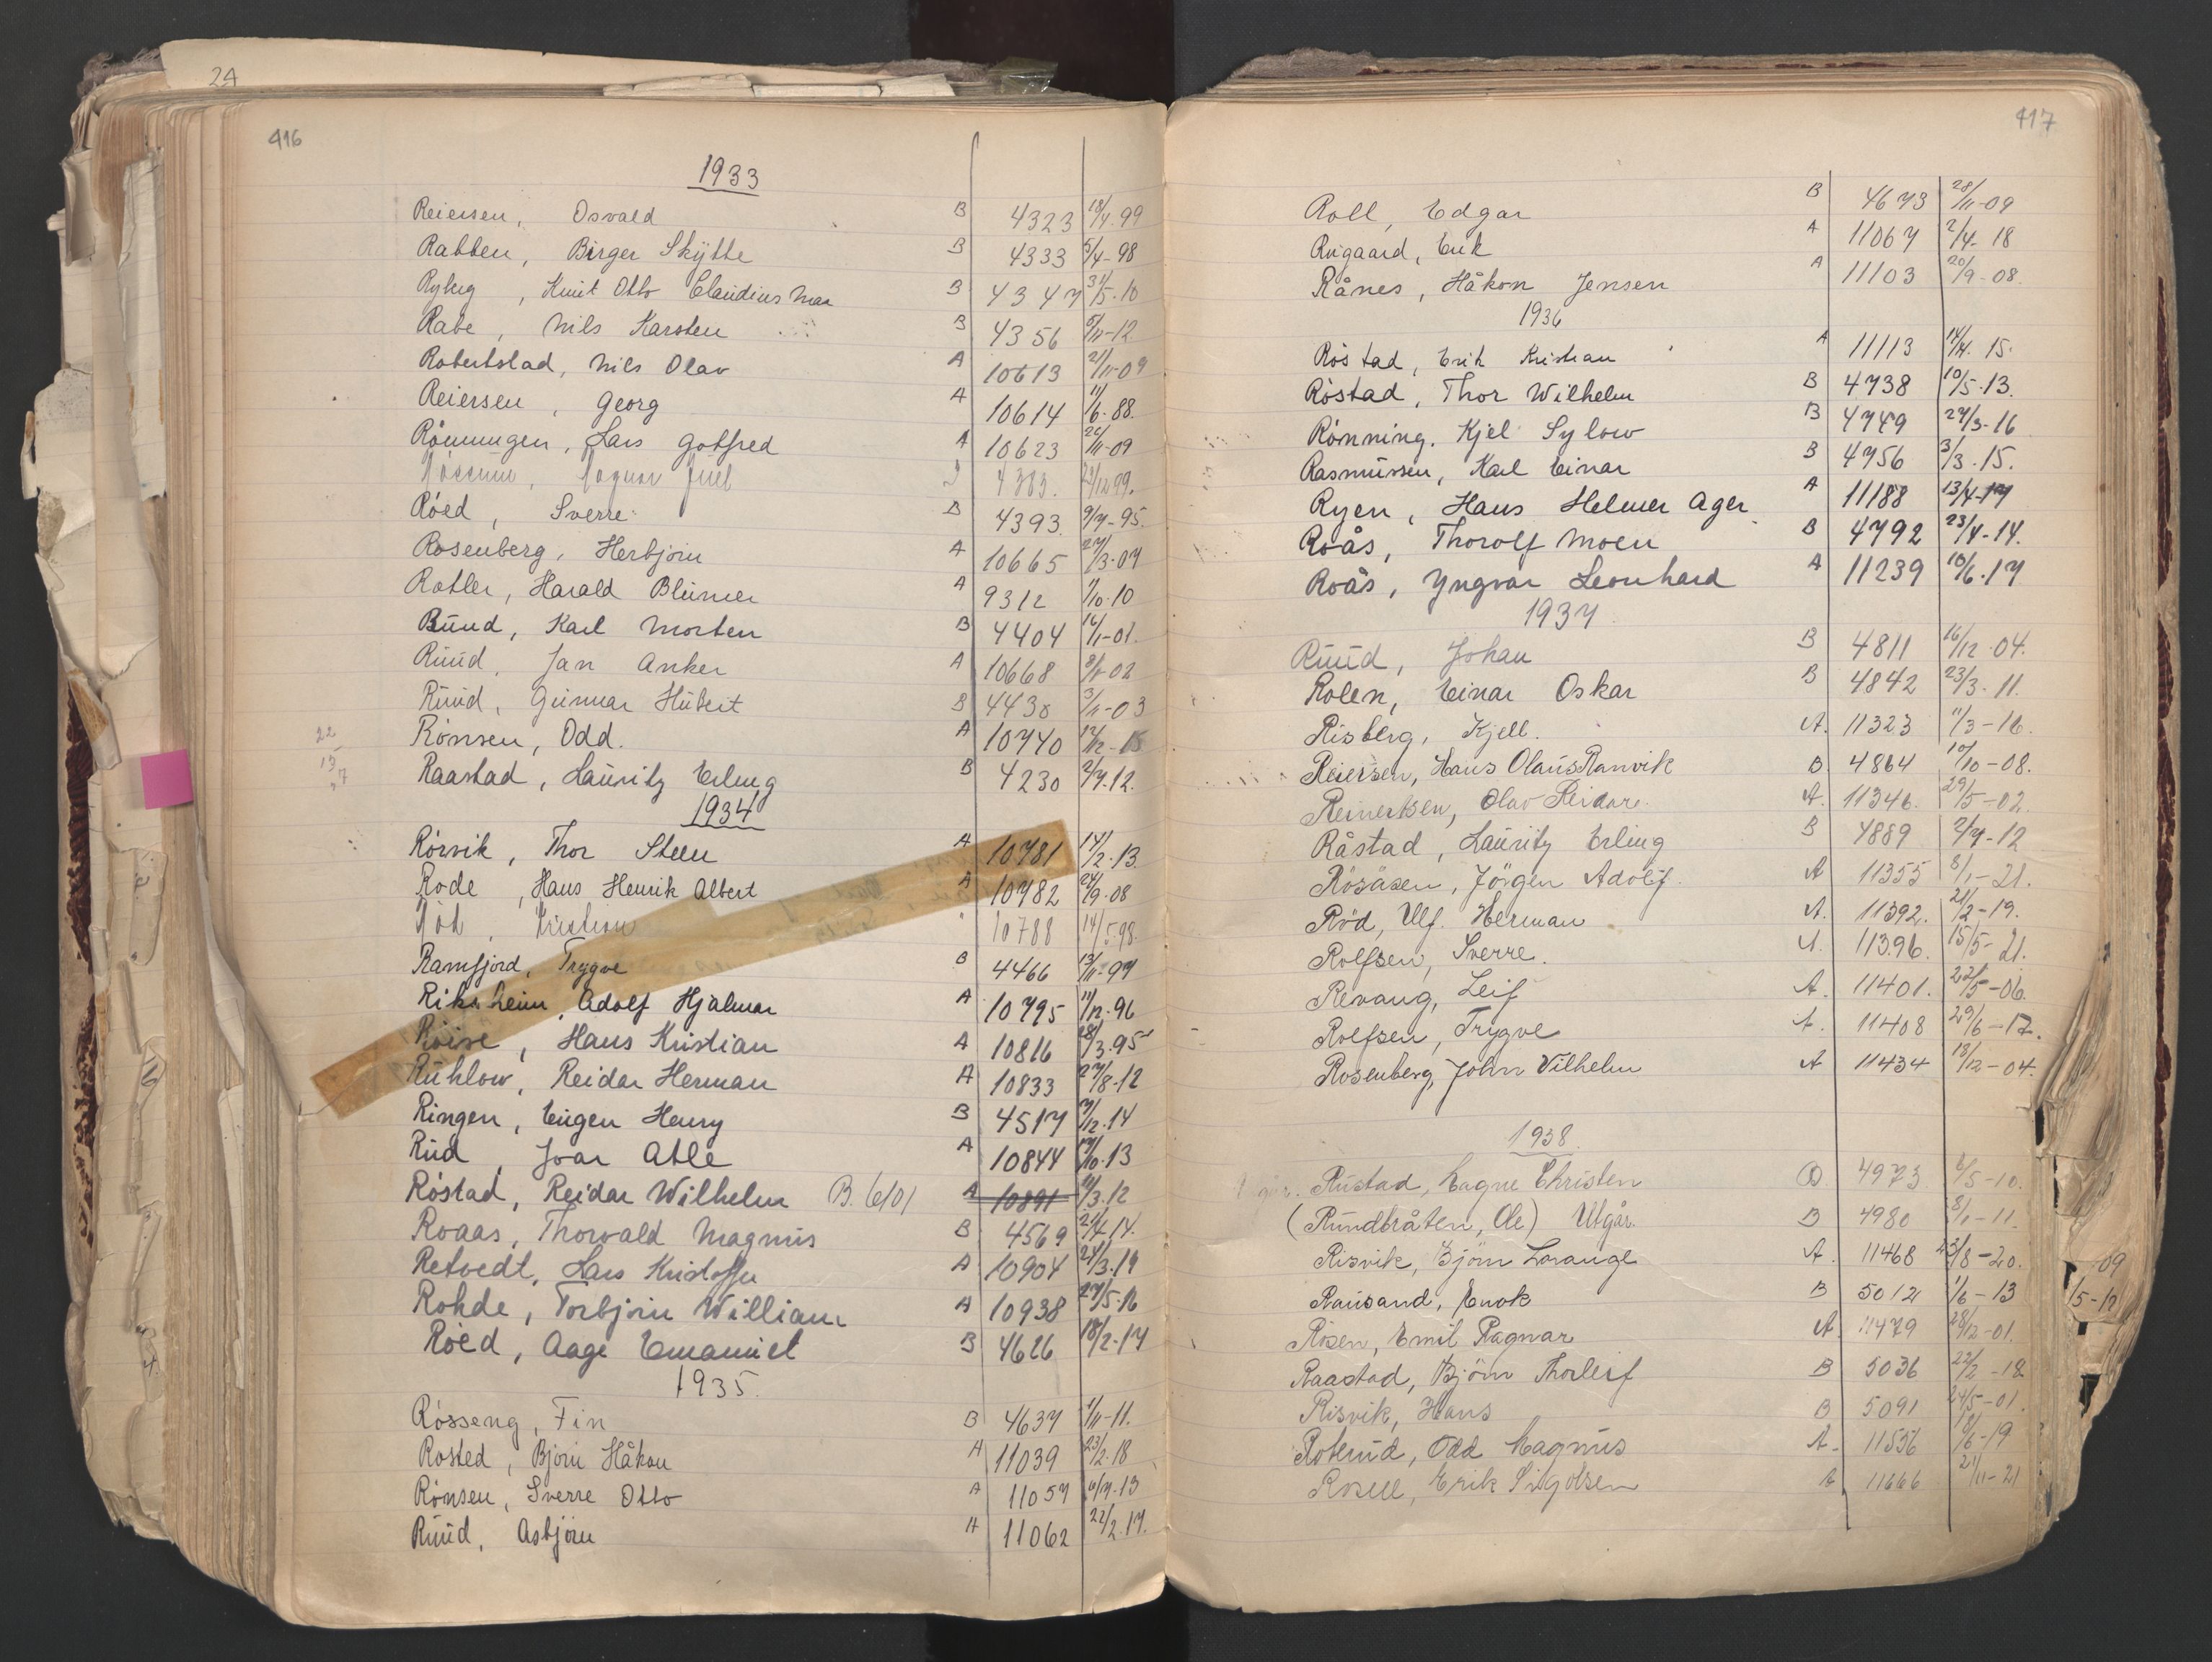 24
416
1933
Reiersen, Osvald B 4323 18/7.99
Rabben, Birger Skýtte B 4333 5/4-98
Ryberg, Knut Otto Claudius Mar B 4347 31/5.10
Rabe, Nils Karsten B 4356 5/11-12.
Robertstad, Nils Olav A 10613 21/11-09
Reiersen, Georg A 10614 11/6-88.
Rønningen, Lars Gotfred A 10623 26/11-09
Magnar Juel 4383. 21/12 99.
Röed, Sverre B 4393 9/7-95.
Rosenberg, Herbjörn A 10665 27/3-07
Rotler, Harald Blümer A 9312 1/10.10
Ruud, Karl Morten B 4404 16/1-01.
Ruud, Jan Anker A 10668
Ruud, Gunnar Hubert B 4438 3/11-03
Rönsen, Odd. A 10740 12/12-15
Raastad, Lauritz Erling B 4230 2/7.12.
22
13
7
1934
Rörvik, Thor Steen A 10781 14/2.13.
Rode, Hans Henrik Albert A 10782 24/9-08
Kristian " 10788 14/5.98.
Ramfjord, Trygve B 4466 13/11-97
Riksheim, Adolf Hjalmar A 10795 11/12.96
Röise, Hans Kristian A 10816 28/3.95
Rühlow, Reidar Herman A 10833 27/8-12
Ringen, Eugen Henry B 4517 7/12.14
Rud, Ivar Atle A 10844 17/10.13
Röstad, Reidar Wilhelm B. 6101 A 10891 11/3.12
Roaas, Thorvald Magnus B 4569 21/4.14.
Retvedt, Lars Kristoffer A 10904 24/3.19
Rohde, Torbjörn William A 10938 27/5.16
Röed, Aage Emanuel B 4626 18/2-17
1935.
Rösseng, Fin B 4637 1/11-11.
Rosted, Björn Håkon A 11039 23/2.18
Rönsen, Sverre Otto A 11057 6/7-13
Ruud, Asbjörn A 11062 22/2.17.
417
Roll, Edgar B 4673 28/11-09
Rugaard, Erik A 11067 2/4-18
Rånes, Håkon Jensen A 11103 20/9-08.
1936
Röstad, Erik Kristian A 11113 14/4.15.
Röstad, Thor Wilhelm B 4738 10/5.13.
Rönning. Kjel Sylow B 4749 27/3-16
Rasmussen, Karl Einar B 4756 3/3.15.
Ryen, Hans Helmer Ager A 11188 13/4-17
Roås, Thorolf Moen B 4792 23/4-14.
Roås, Yngvar Leonhard A 11239 10/6.17
1937
Ruud, Johan B 4811 16/12.04.
Rolen, Einar Oskar B 4842 23/3.11.
Risberg, Kjell. A. 11323 11/3-16.
Reiersen, Hans Olaus Ranvik B. 4864 10/10-08.
Reinertsen, Olav Reidar. A. 11346. 29/5-02.
Råstad, Lauritz Erling B 4889 2/7-12
Rösåsen, Jörgen Adolf. A 11355 8/1-21.
Röd, Ulf. Herman A. 11392. 21/2-19.
Rolfsen, Sverre. A. 11396. 15/5-21.
Revaug, Leif A. 11401. 22/5-06.
Rolfsen, Trygve A. 11408 29/6-17.
Rosenberg, John Vilhelm A 11434 18/12-04.
1938.
Rustad, Magne Christen B. 4973 6/5-10.
(Rundbråten, Ole) Utgår. B 4980 8/1-11.
Risvik, Björn Lorange A. 11468 23/8-20.
Rausand, Enok B 5012 1/6-13
Rosen, Emil Ragnar A. 11479 28/12-01.
Raastad, Björn Thorleif B 5036 22/2-18
Risvik, Hans B 5091 24/5-01.
Roterud, Odd Magnus A. 11556 18/6-19
Rosell, Erik Sigolsen A 11666 21/11-21
09
/5-12